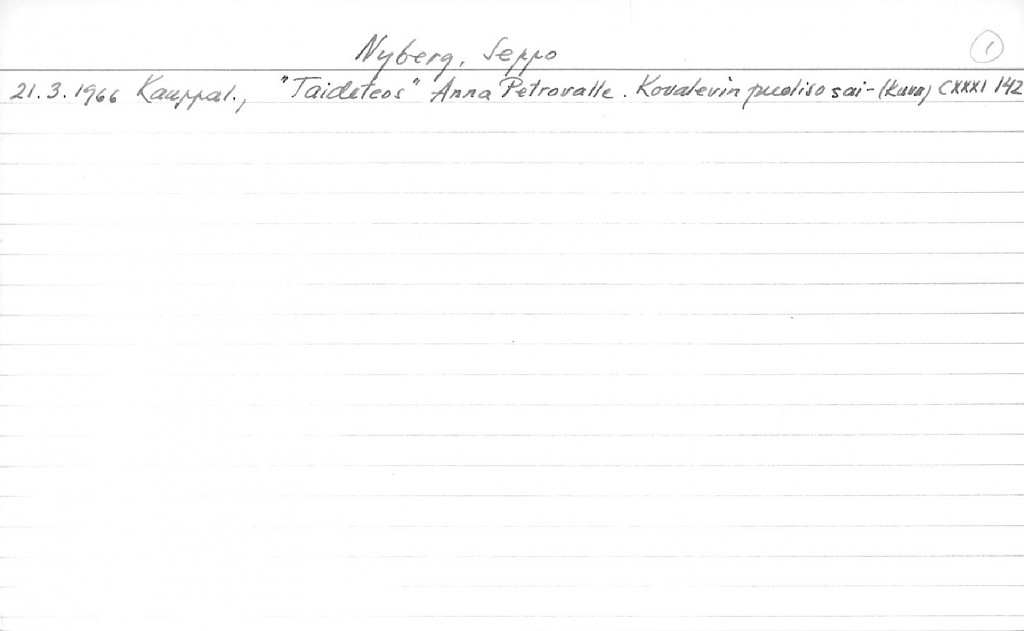 Nyberg, Seppo 1
21.3.1966 Kauppal., "Taideteos" Anna Petrovalle. Kovalevin puoliso sai- (kuva) CXXXI 142